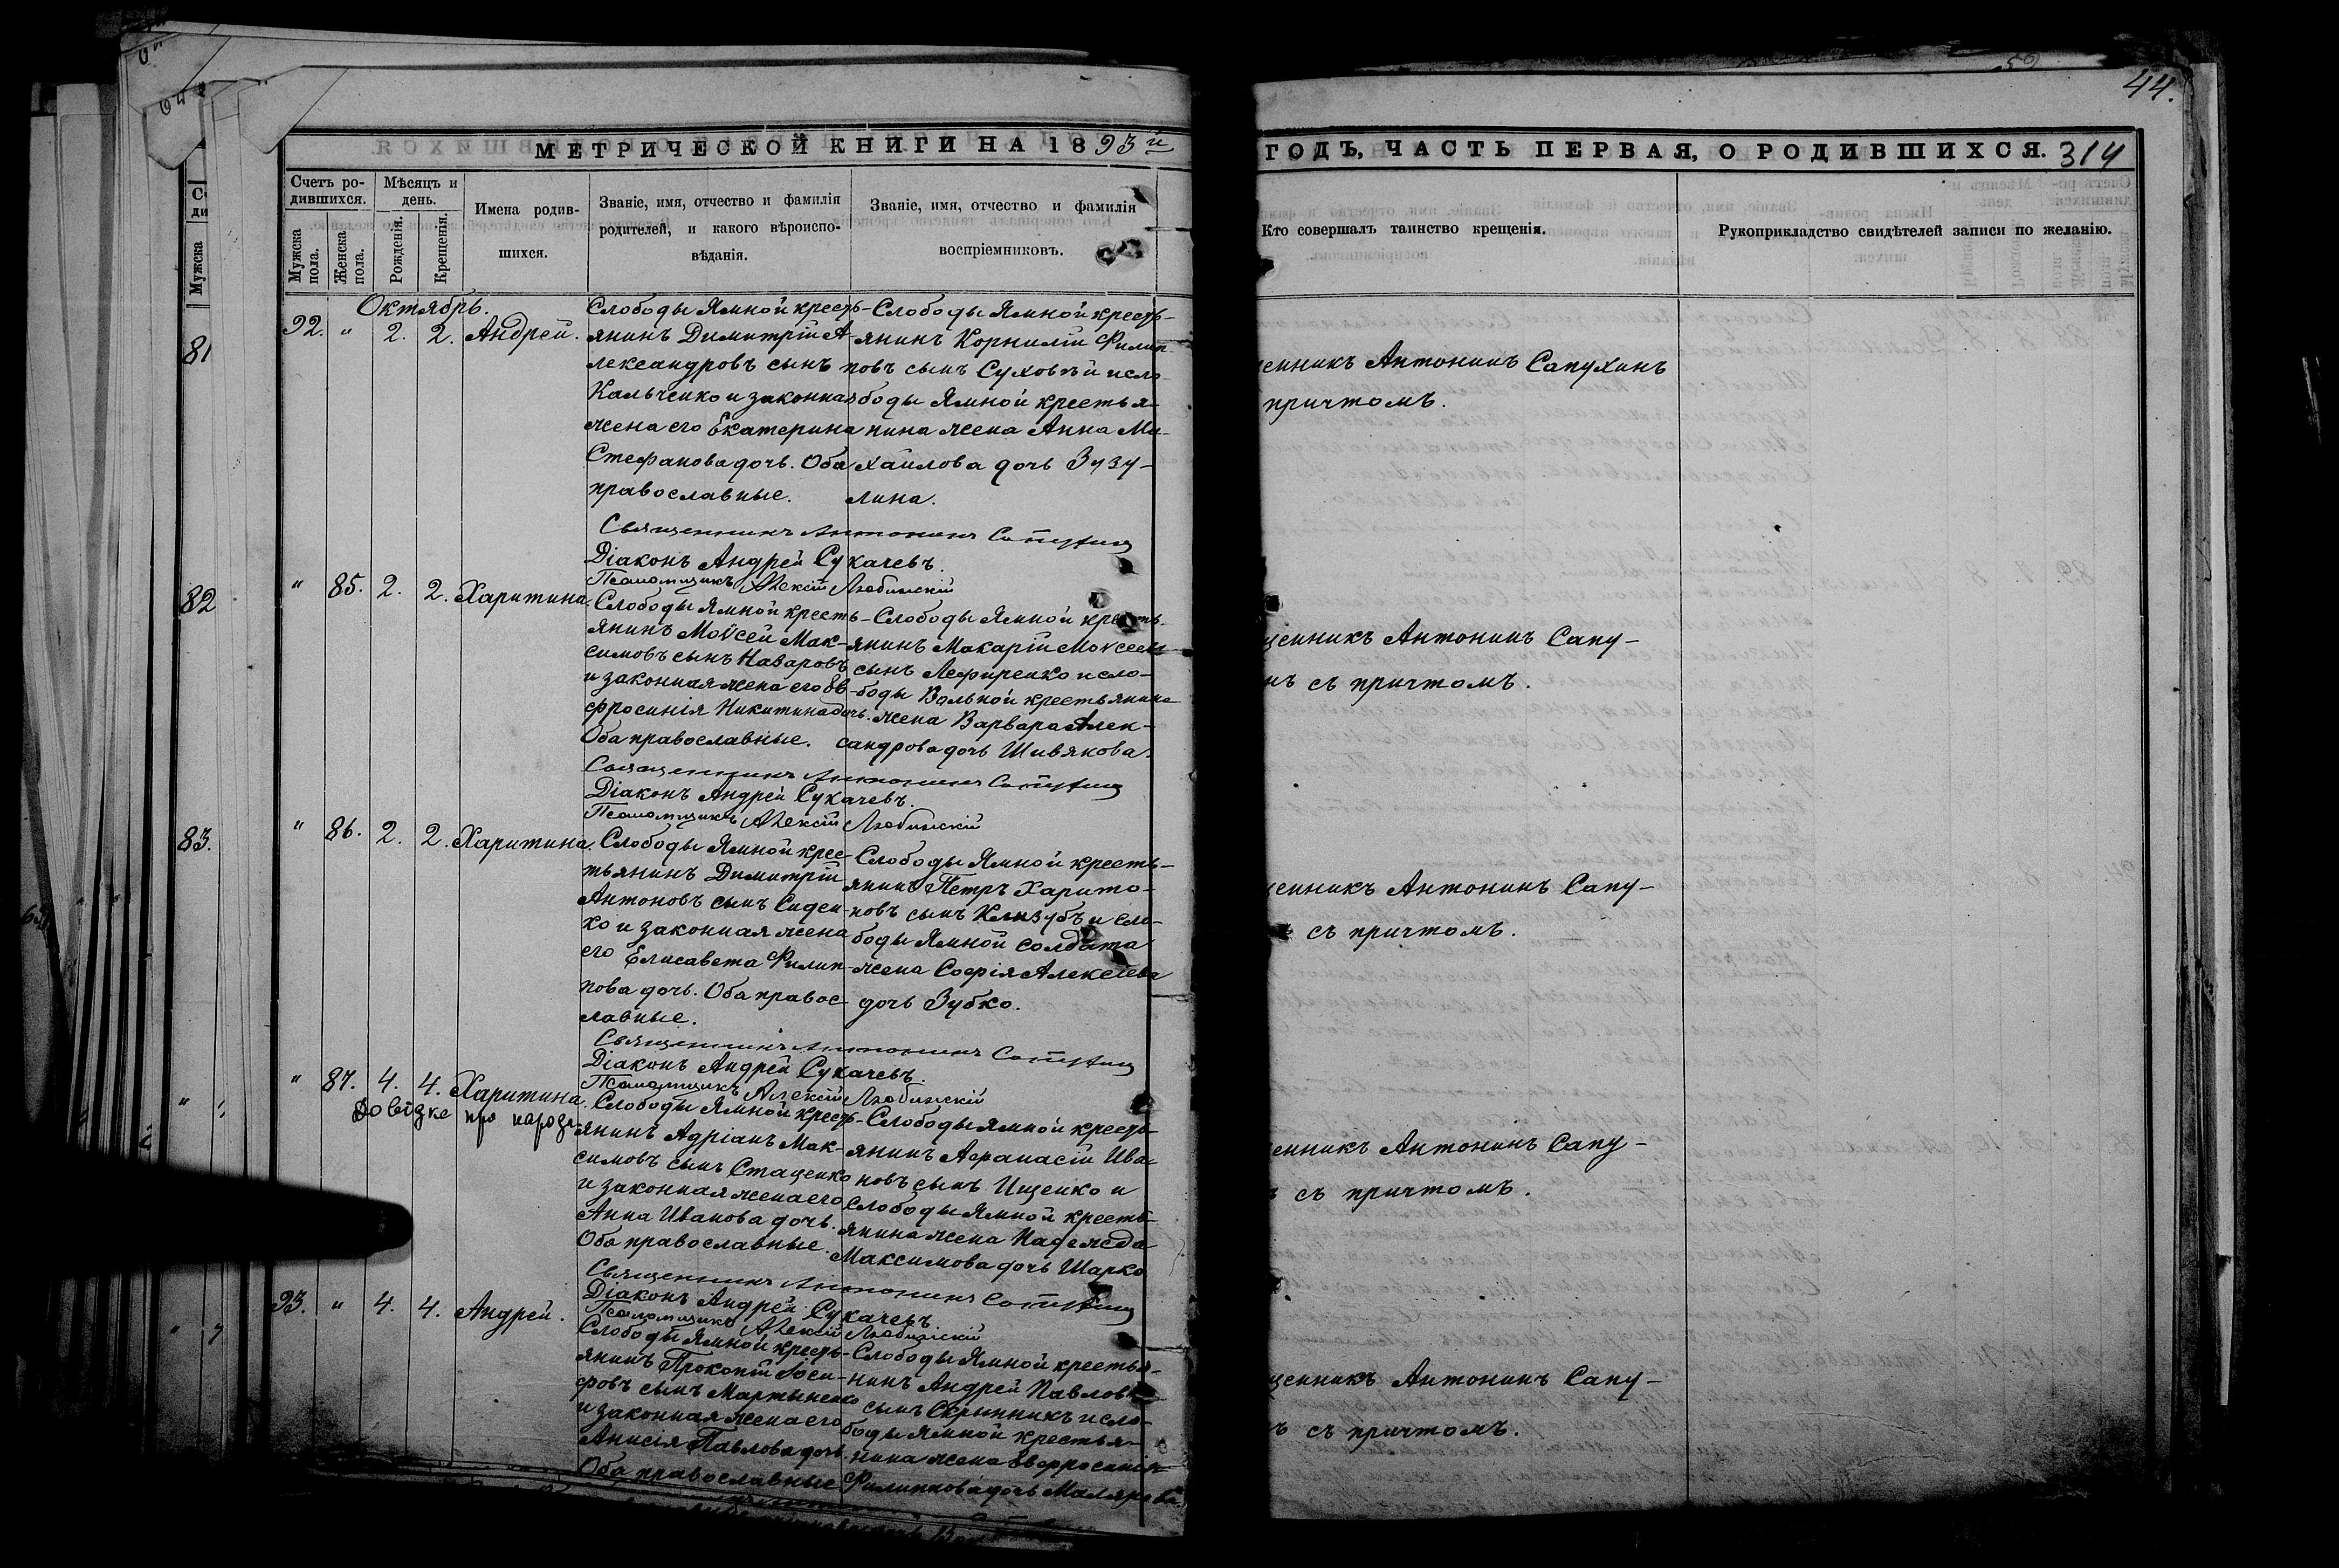 44.
МЕТРИЧЕСКОЙ КНИГИ НА 1893й
ГОДЪ, ЧАСТЬ ПЕРВАЯ, О РОДИВШИХСЯ. 314
Счетъ ро-
дившихся.
Мужска пола.
Женска пола.
Мѣсяцъ и
день.
Рожденія.
Крещенія.
Имена родив-
шихся.
Званіе, имя, отчество и фамилія
родителей, и какого вѣроиспо-
вѣданія.
Званіе, имя, отчество и фамилія
воспріемниковъ.
Кто совершалъ таинство крещенія.
Рукоприкладство свидѣтелей записи по желанію.
Мужска
81
82
83.
Октябрь.
92. " 2. 2. Андрей.
Слободы Ямной кресть-
янинъ Димитрій А-
лександровъ сынъ
Кальченко и законная
жена его Екатерина
Стефанова дочь. Оба
православные.
Слободы Ямной кресть-
янинъ Корнилій Филип
повъ сынъ Суховѣй и сло-
боды Ямной крестья-
нина жена Анна Ми-
хаилова дочь Зузу-
лина.
енникъ Антонинъ Сапухинъ
причтомъ.
Священникъ Антонинъ Сапухин
Діаконъ Андрей Сукачевъ.
Псаломщикъ Алексій Любинскій
" 85. 2. 2. Харитина.
Слободы Ямной кресть-
янинъ Моѵсей Мак-
симовъ сынъ Назаровъ
и законная жена его Ев-
фросинія Никитина дочь.
Оба православные.
Слободы Ямной кресть-
янинъ Макарій Моѵсеевъ
сынъ Лефиренко и сло-
боды Вольной крестьянина
жена Варвара Алек-
сандрова дочь Шивякова.
щенникъ Антонинъ Сапу-
нъ съ причтомъ.
Священникъ Антонинъ Сапухин
Діаконъ Андрей Сукачевъ.
Псаломщикъ Алексій Любинскій
" 86. 2. 2. Харитина.
Слободы Ямной крес-
тьянинъ Димитрій
Антоновъ сынъ Сиден-
ко и законная жена
его Елисавета Филип-
пова дочь. Оба правос
лавные.
Слободы Ямной кресть-
янинъ Петръ Харито-
новъ сынъ Клизубъ и сло-
боды Ямной солдата
жена Софія Алексѣева
дочь Зубко.
енникъ Антонинъ Сапу-
съ причтомъ.
Священникъ Антонинъ Сапухин
Діаконъ Андрей Сукачевъ.
Псаломщикъ Алексій Любинскій
" 87. 4. 4. Харитина.
Довідке про народ
Слободы Ямной кресть-
янинъ Адріанъ Мак-
симовъ сынъ Стаценко
и законная жена его
Анна Иванова дочь.
Оба православные.
Слободы Ямной кресть-
янинъ Афанасій Ива
новъ сынъ Ищенко и
слободы Ямной кресть-
янина жена Надежда
Максимова дочь Шарко
енникъ Антонинъ Сапу-
ъ съ причтомъ.
Священникъ Антонинъ Сапухин
Діаконъ Андрей Сукачевъ.
Псаломщикъ Алексій Любинскій
93. " 4. 4. Андрей.
Слободы Ямной кресть-
янинъ Прокопій Іоси-
фовъ сынъ Мартыненко
и законная жена его
Анисія Павлова дочь.
Оба православные
Слободы Ямной крестья-
нинъ Андрей Павловъ
сынъ Скрынникъ и сло-
боды Ямной крестья-
нина жена Евфросинія
Филиппова дочь Маляренко.
щенникъ Антонинъ Сапу-
ъ съ причтомъ.